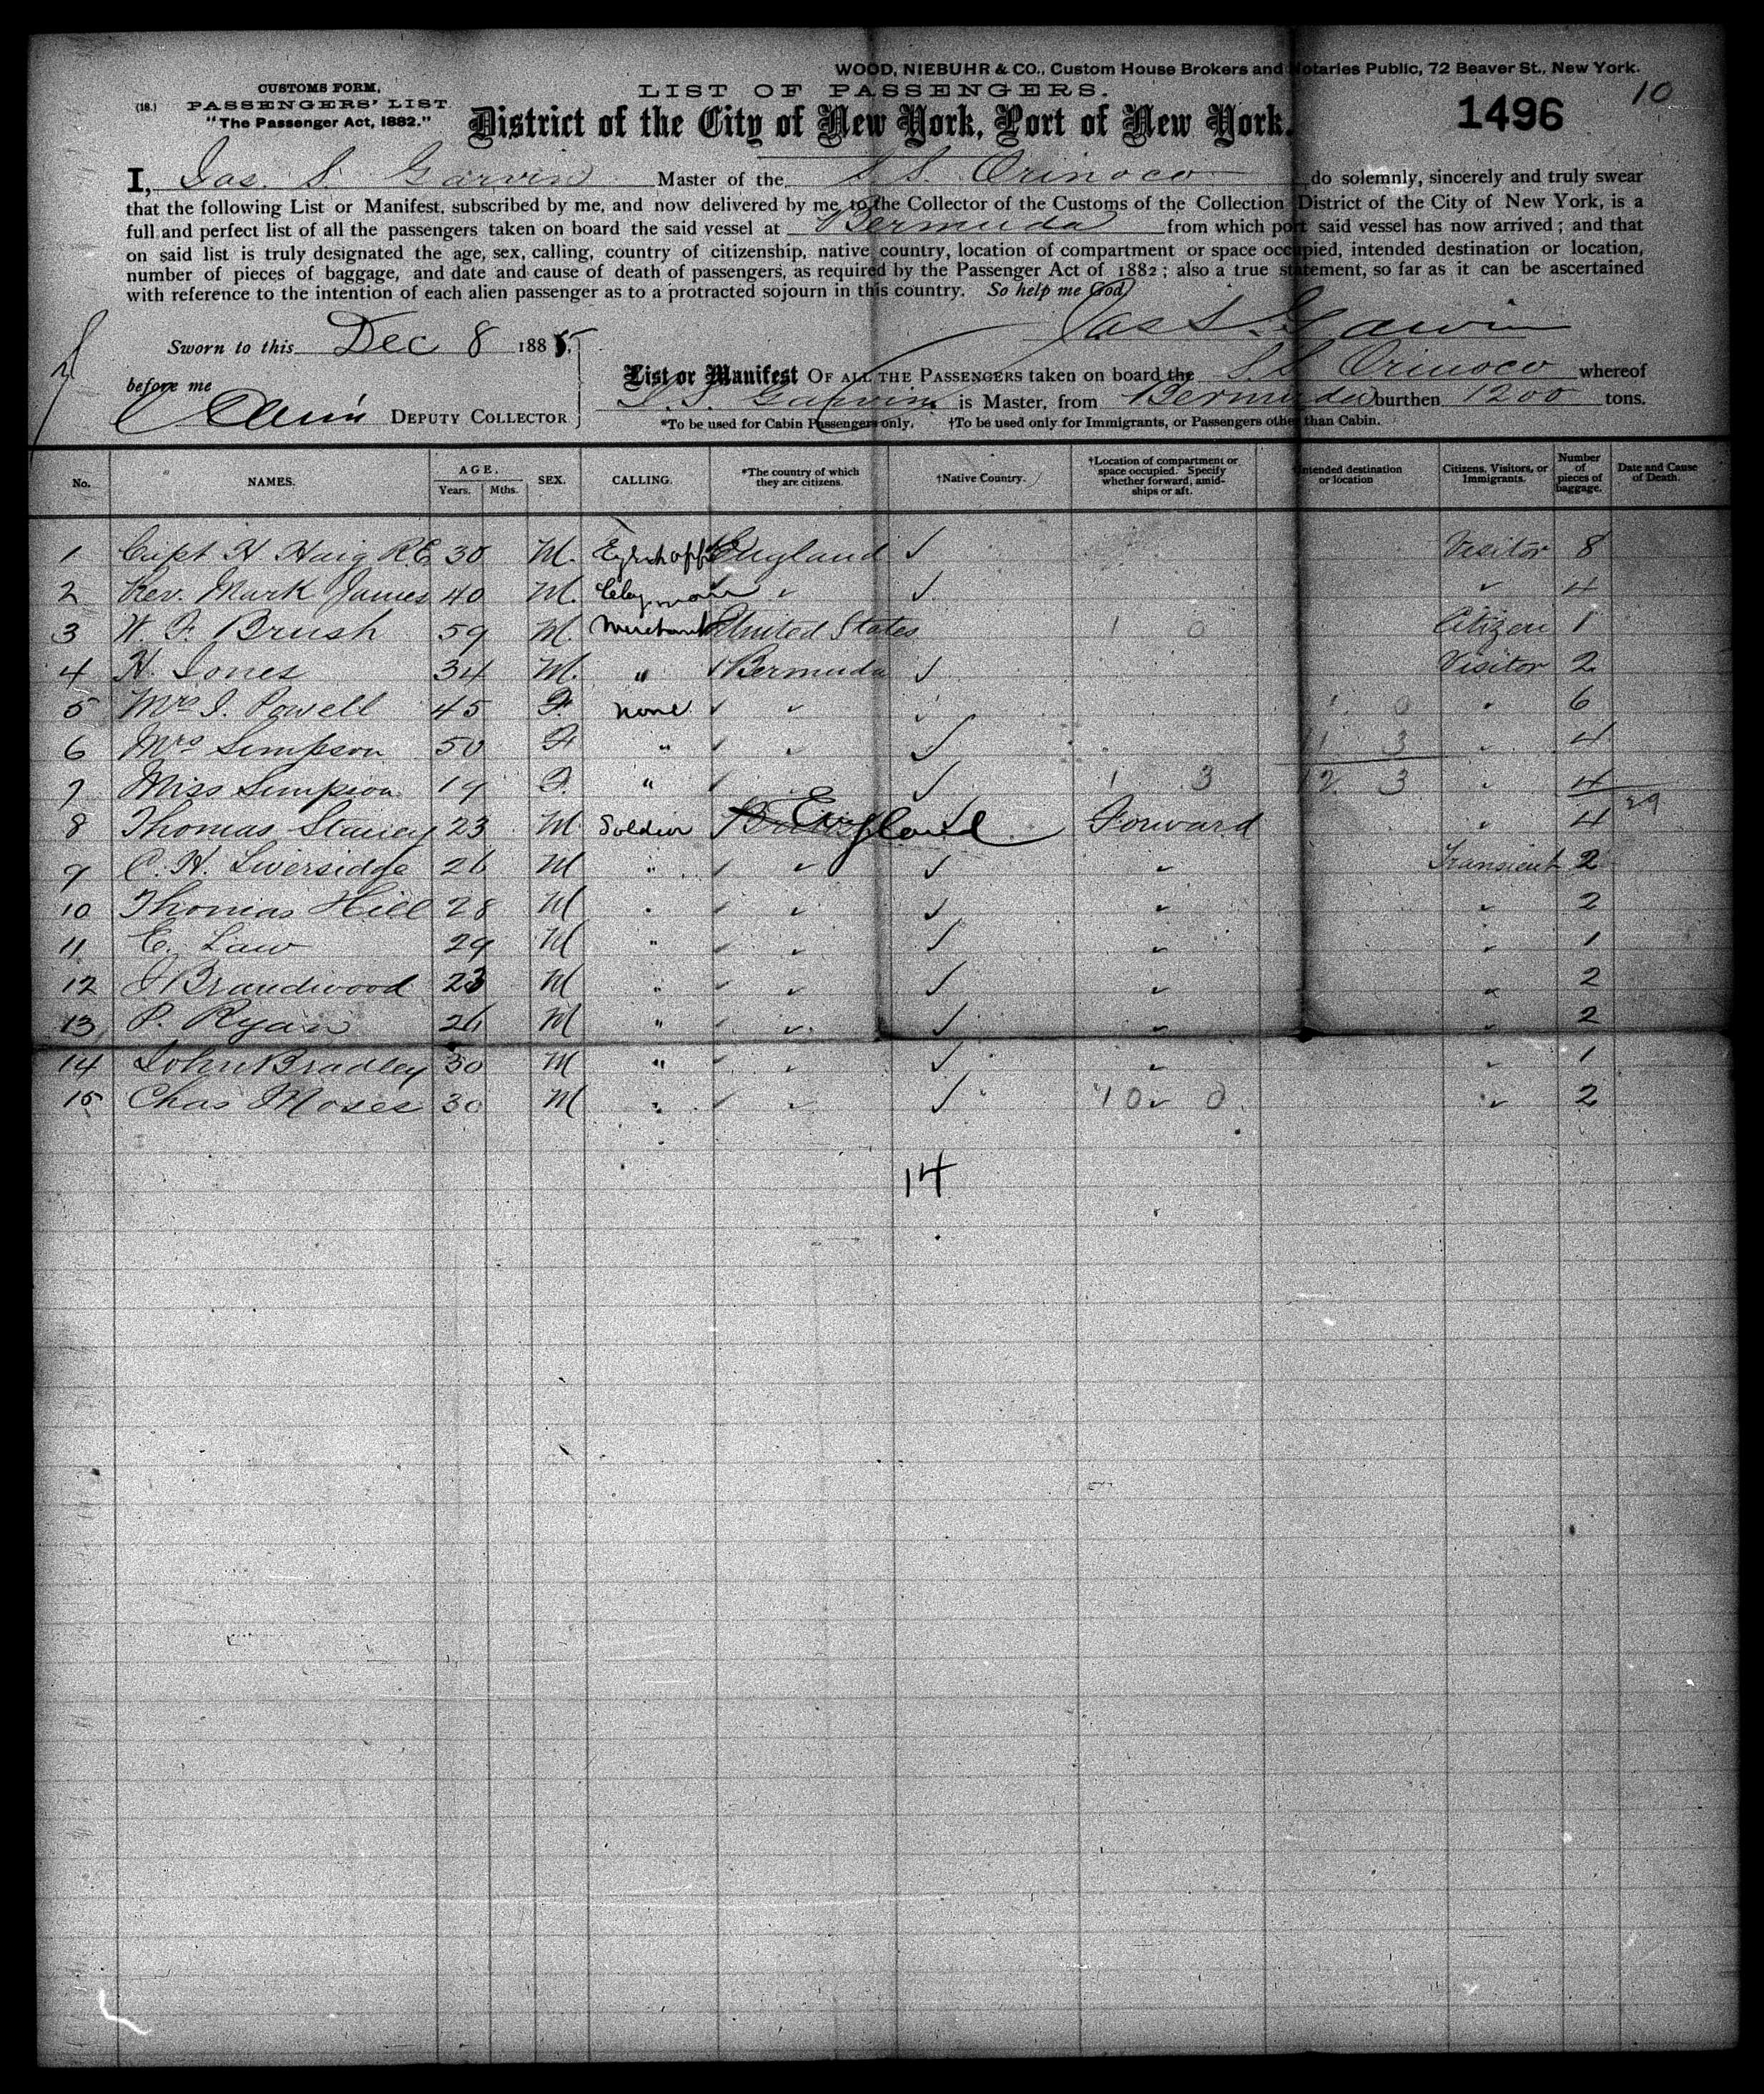 WOOD, NIEBUHR & CO., Custom House Brokers and Notaries Public, 72 Beaver St., New York.
10
(18.) CUSTOMS FORM,
PASSENGERS' LIST.
"The Passenger Act, 1882."
LIST OF PASSENGERS.
1496
District of the City of New York, Port of New York.
I, Jas. S. Garvin Master of the S.S. Orinoco do solemnly, sincerely and truly swear
that the following List or Manifest, subscribed by me, and now delivered by me to the Collector of the Customs of the Collection District of the City of New York, is a
full and perfect list of all the passengers taken on board the said vessel at Bermuda from which port said vessel has now arrived; and that
on said list is truly designated the age, sex, calling, country of citizenship, native country, location of compartment or space occupied, intended destination or location,
number of pieces of baggage, and date and cause of death of passengers, as required by the Passenger Act of 1882; also a true statement, so far as it can be ascertained
with reference to the intention of each alien passenger as to a protracted sojourn in this country. So help me God
Jas S. Garvin
Sworn to this Dec 8 1885.
before me
DEPUTY COLLECTOR
List or Manifest OF ALL THE PASSENGERS taken on board the S.S. Orinoco whereof
J. S. Garvin is Master, from Bermuda burthen 1200 tons.
*To be used for Cabin Passengers only. †To be used only for Immigrants, or Passengers other than Cabin.
No. NAMES. AGE. Years. Mths. SEX. CALLING. *The country of which they are citizens. †Native Country. †Location of compartment or space occupied. Specify whether forward, amidships or aft. Intended destination or location Citizens, Visitors, or Immigrants. Number of pieces of baggage. Date and Cause of Death.
1 Capt H Haig R.E. 30 M. England ✓ Visitor 8
2 Rev. Mark James 40 M. Clergyman " ✓ " 4
3 W. F. Brush 59 M. Merchant United States 1 0 Citizen 1
4 H. Jones 34 M. " Bermuda ✓ Visitor 2
5 Mrs J. Powell 45 F. none ✓ " ✓ 1 0 " 6
6 Mrs Simpson 50 F. " ✓ " ✓ 11 3 " 4
7 Miss Simpson 19 F. " ✓ ✓ 1 3 12 3 " 4
29
8 Thomas Stacey 23 M Soldier England Forward " 4
9 C. H. Liversidge 26 M " ✓ " ✓ " Transient 2
10 Thomas Hill 28 M " ✓ " ✓ " " 2
11 E. Law 29 M " ✓ " ✓ " " 1
12 J Brandwood 23 M " ✓ " ✓ " " 2
13 P. Ryan 26 M " ✓ " ✓ " " 2
14 John Bradley 30 M " ✓ " ✓ " " 1
15 Chas Moses 30 M " ✓ " ✓ 10 " 0 " 2
14